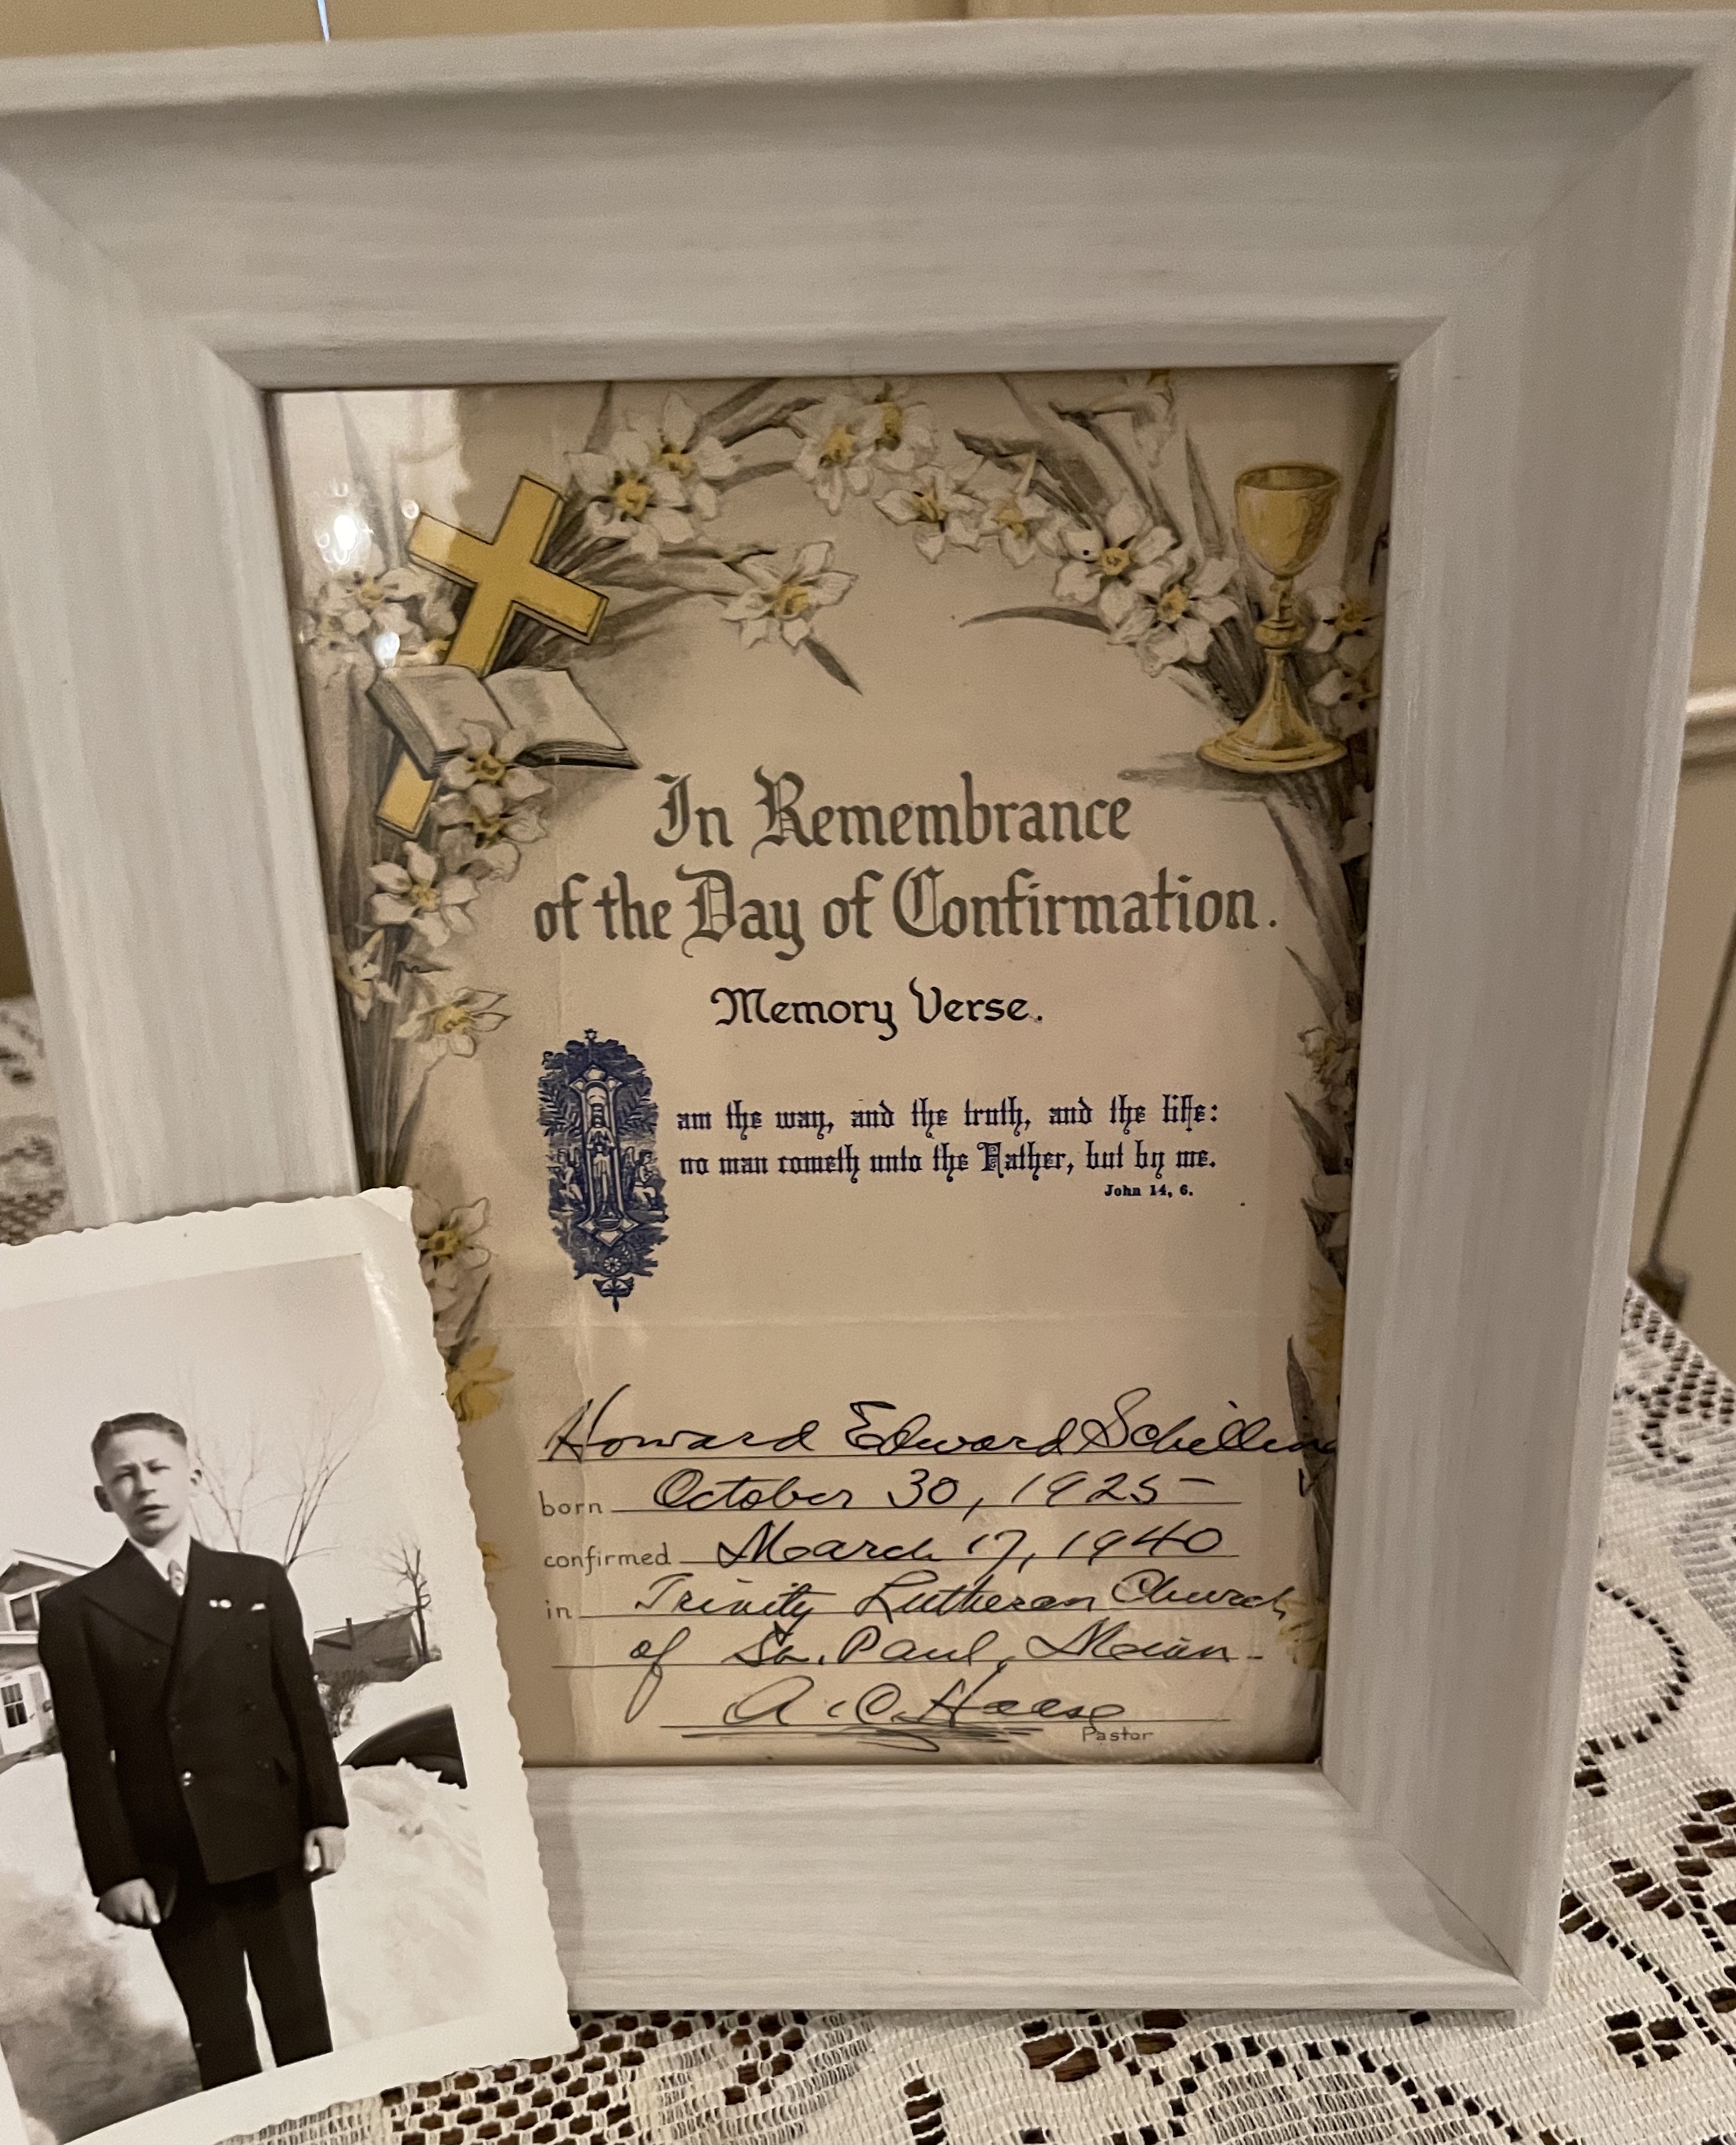 In Remembrance
of the Day of Confirmation.
Memory Verse.
I am the way, and the truth, and the life:
no man cometh unto the Father, but by me.
John 14, 6.
Howard Edward Schilling
born October 30, 1925
confirmed March 17, 1940
in Trinity Lutheran Church
of St. Paul, Minn.
A. C. Haase
Pastor